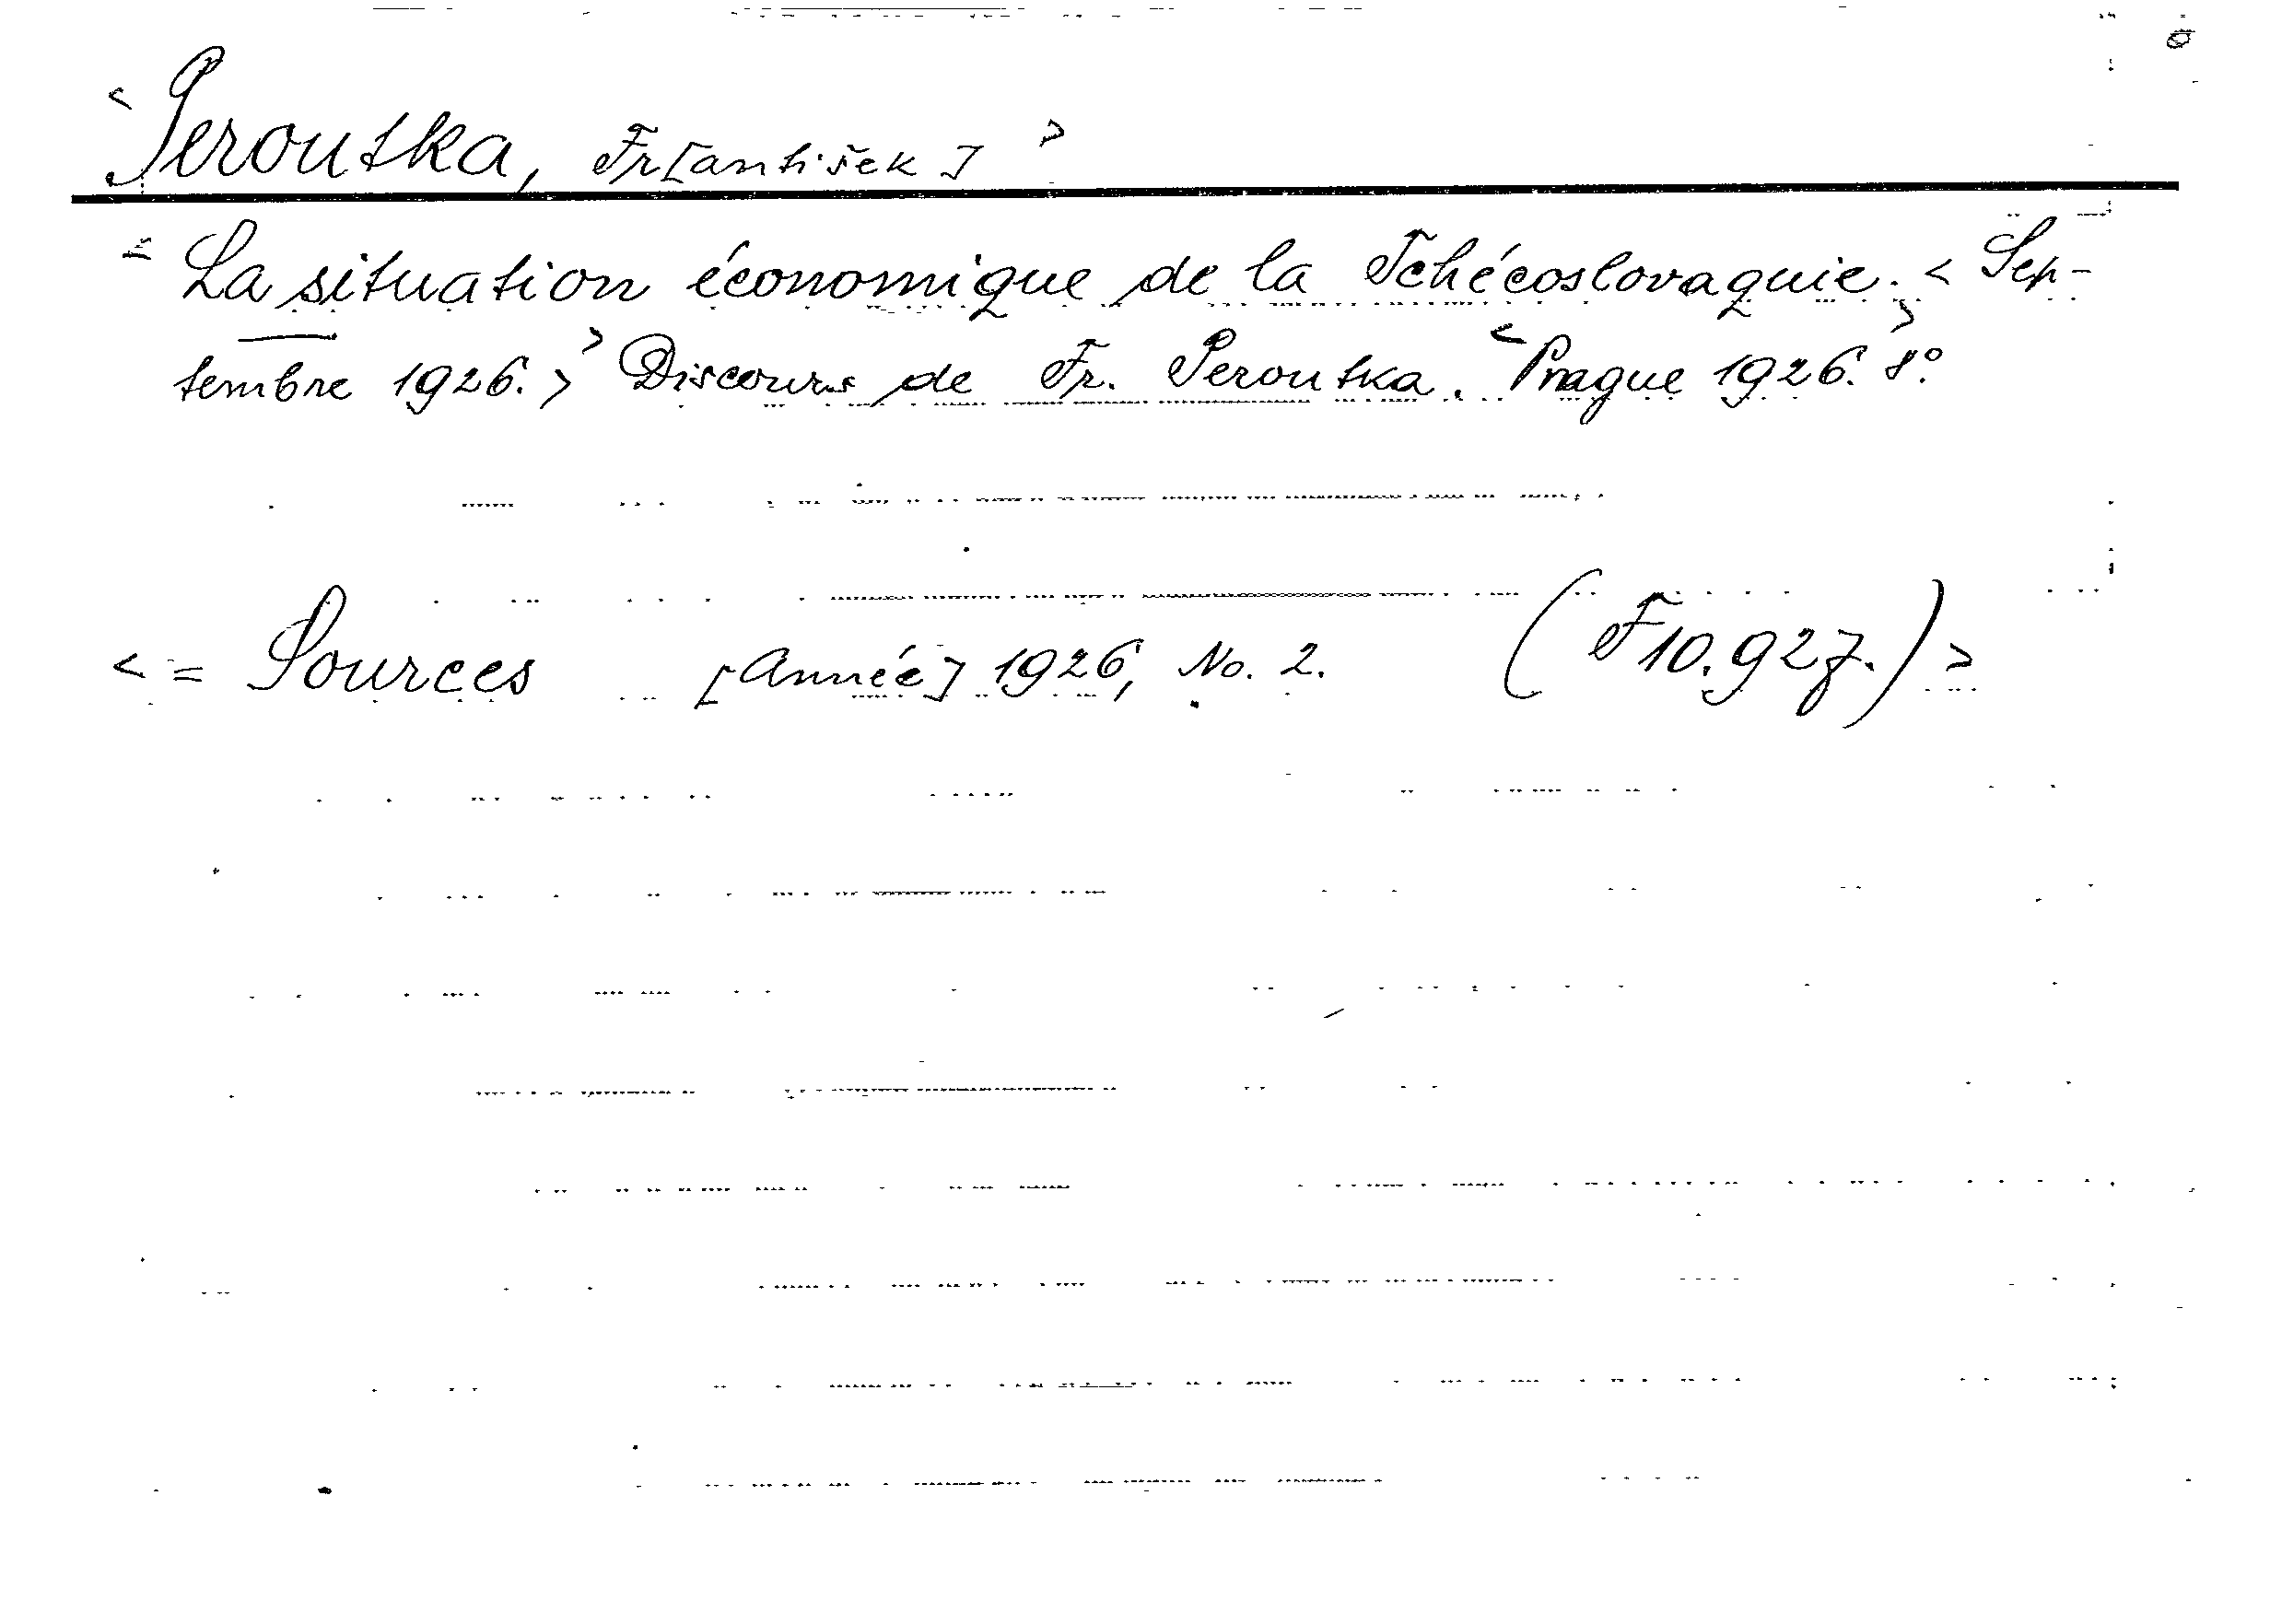 < Peroutka, Fr[antišek] >
= La situation économique de la Tchécoslovaquie. < Sep-
tembre 1926. > Discours de Fr. Peroutka. < Prague 1926. 8°. >
< = Sources [Année] 1926, No. 2. (F 10.927.) >